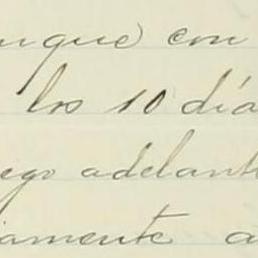 unque con
los 10 día
ego adelant
iamente a